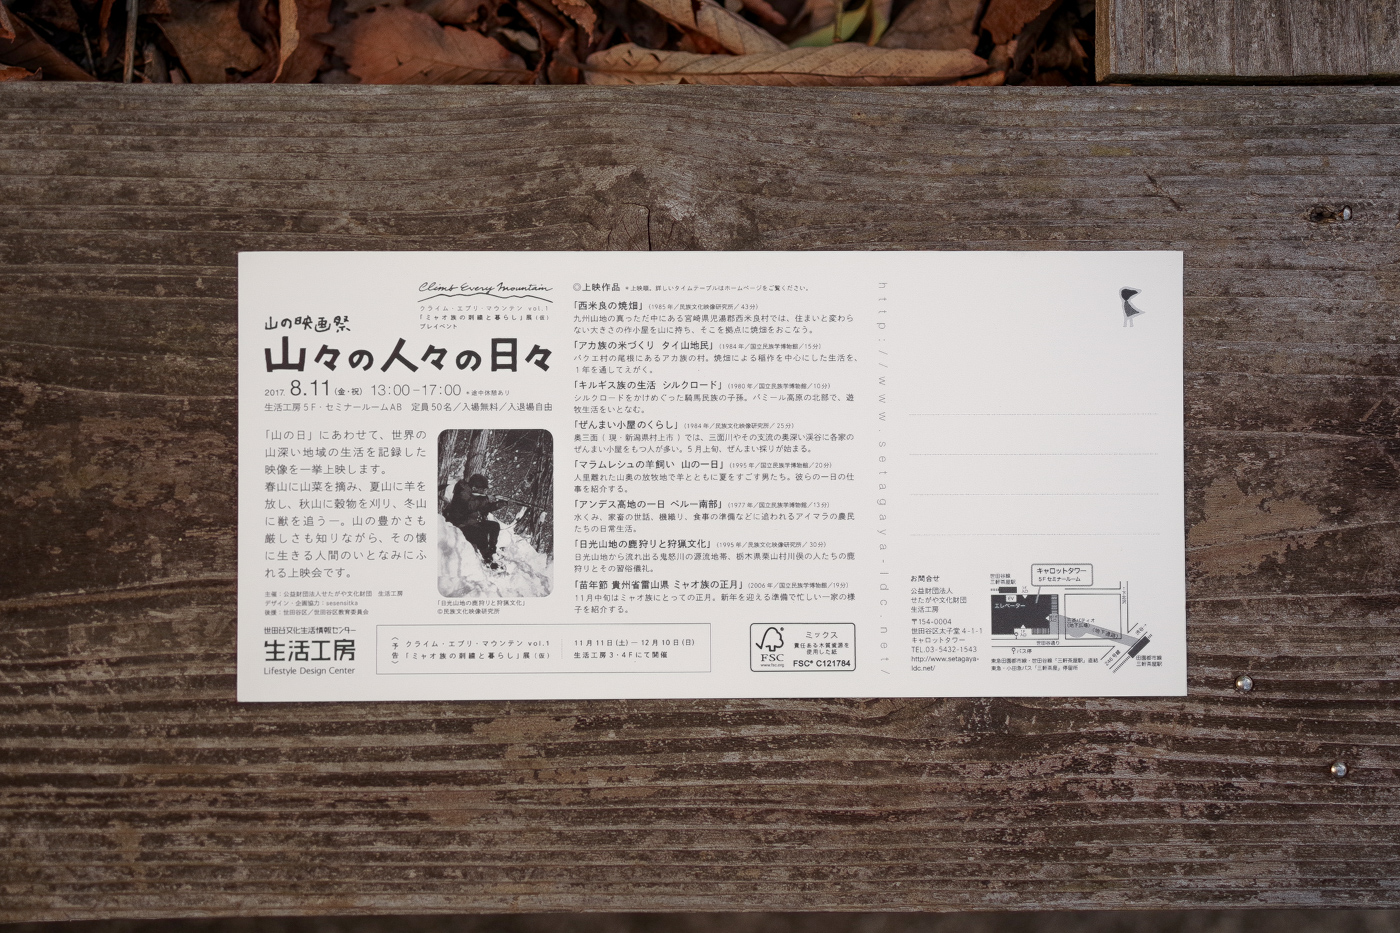 Climb Every Mountain
クライム・エブリ・マウンテン vol.1
「ミャオ族の刺繍と暮らし」展(仮)
プレイベント
山の映画祭
山々の人々の日々
2017. 8.11(金・祝) 13:00−17:00 *途中休憩あり
生活工房5F・セミナールームAB 定員50名／入場無料／入退場自由
「山の日」にあわせて、世界の
山深い地域の生活を記録した
映像を一挙上映します。
春山に山菜を摘み、夏山に羊を
放し、秋山に穀物を刈り、冬山
に獣を追う―。山の豊かさも
厳しさも知りながら、その懐
に生きる人間のいとなみにふ
れる上映会です。
主催：公益財団法人せたがや文化財団 生活工房
デザイン・企画協力：sesensitka
後援：世田谷区／世田谷区教育委員会
「日光山地の鹿狩りと狩猟文化」
©民族文化映像研究所
世田谷文化生活情報センター
生活工房
Lifestyle Design Center
〈予告〉
クライム・エブリ・マウンテン vol.1
「ミャオ族の刺繍と暮らし」展(仮)
11月11日(土)―12月10日(日)
生活工房3・4Fにて開催
◎上映作品 *上映順。詳しいタイムテーブルはホームページをご覧ください。
「西米良の焼畑」(1985年／民族文化映像研究所／43分)
九州山地の真っただ中にある宮崎県児湯郡西米良村では、住まいと変わら
ない大きさの作小屋を山に持ち、そこを拠点に焼畑をおこなう。
「アカ族の米づくり タイ山地民」(1984年／国立民族学博物館／15分)
パクエ村の尾根にあるアカ族の村。焼畑による稲作を中心にした生活を、
1年を通してえがく。
「キルギス族の生活 シルクロード」(1980年／国立民族学博物館／10分)
シルクロードをかけめぐった騎馬民族の子孫。パミール高原の北部で、遊
牧生活をいとなむ。
「ぜんまい小屋のくらし」(1984年／民族文化映像研究所／25分)
奥三面（現・新潟県村上市）では、三面川やその支流の奥深い渓谷に各家の
ぜんまい小屋をもつ人が多い。5月上旬、ぜんまい採りが始まる。
「マラムレシュの羊飼い 山の一日」(1995年／国立民族学博物館／20分)
人里離れた山奥の放牧地で羊とともに夏をすごす男たち。彼らの一日の仕
事を紹介する。
「アンデス高地の一日 ペルー南部」(1977年／国立民族学博物館／13分)
水くみ、家畜の世話、機織り、食事の準備などに追われるアイマラの農民
たちの日常生活。
「日光山地の鹿狩りと狩猟文化」(1995年／民族文化映像研究所／30分)
日光山地から流れ出る鬼怒川の源流地帯、栃木県栗山村川俣の人たちの鹿
狩りとその習俗儀礼。
「苗年節 貴州省雷山県 ミャオ族の正月」(2006年／国立民族学博物館／19分)
11月中旬はミャオ族にとっての正月。新年を迎える準備で忙しい一家の様
子を紹介する。
FSC
www.fsc.org
ミックス
責任ある木質資源を
使用した紙
FSC® C121784
http://www.setagaya-ldc.net/
お問合せ
公益財団法人
せたがや文化財団
生活工房
〒154-0004
世田谷区太子堂4-1-1
キャロットタワー
TEL.03-5432-1543
http://www.setagaya-
ldc.net/
キャロットタワー
5F セミナールーム
世田谷線
三軒茶屋駅
エレベーター
世田谷通り
バス停
田園都市線
三軒茶屋駅
東急田園都市線・世田谷線「三軒茶屋駅」直結
東急・小田急バス「三軒茶屋」停留所